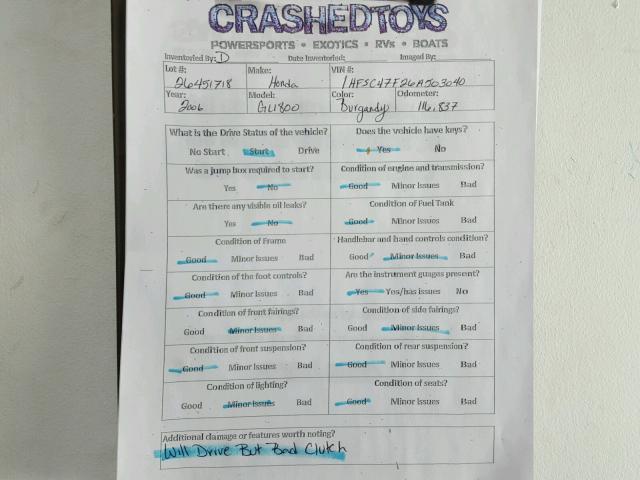 CRASHEDTOYS
POWERSPORTS • EXOTICS • RVs • BOATS
Inventoried By: D Date Inventoried: Imaged By:
Lot #: Make: VIN #:
26451718 Honda 1HFSC47F26A503040
Year: Model: Color: Odometer:
2006 GL1800 Burgandy 116,837
What is the Drive Status of the vehicle? Does the vehicle have keys?
No Start Start Drive Yes No
Was a jump box required to start? Condition of engine and transmission?
Yes No Good Minor Issues Bad
Are there any visible oil leaks? Condition of Fuel Tank
Yes No Good Minor Issues Bad
Condition of Frame Handlebar and hand controls condition?
Good Minor Issues Bad Good Minor Issues Bad
Condition of the foot controls? Are the instrument guages present?
Good Minor Issues Bad Yes Yes/has issues No
Condition of front fairings? Condition of side fairings?
Good Minor Issues Bad Good Minor Issues Bad
Condition of front suspension? Condition of rear suspension?
Good Minor Issues Bad Good Minor Issues Bad
Condition of lighting? Condition of seats?
Good Minor Issues Bad Good Minor Issues Bad
Additional damage or features worth noting?
Will Drive But Bad Clutch